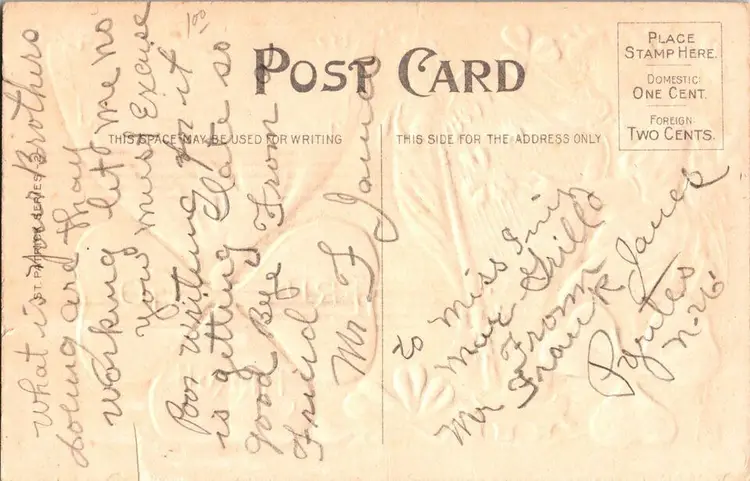 POST CARD
THIS SPACE MAY BE USED FOR WRITING
THIS SIDE FOR THE ADDRESS ONLY
PLACE
STAMP HERE.
DOMESTIC:
ONE CENT.
FOREIGN
TWO CENTS.
ST. PATRICK SERIES
1 00
What is your Brothers
doing are thay
working let me no
you mus Excuse
Poor writing for it
is getting Late so
good Bye From a
Friend
Mr F Janes
to Miss
May
From
Mr Frank Janes
Pyrites
N.Y.